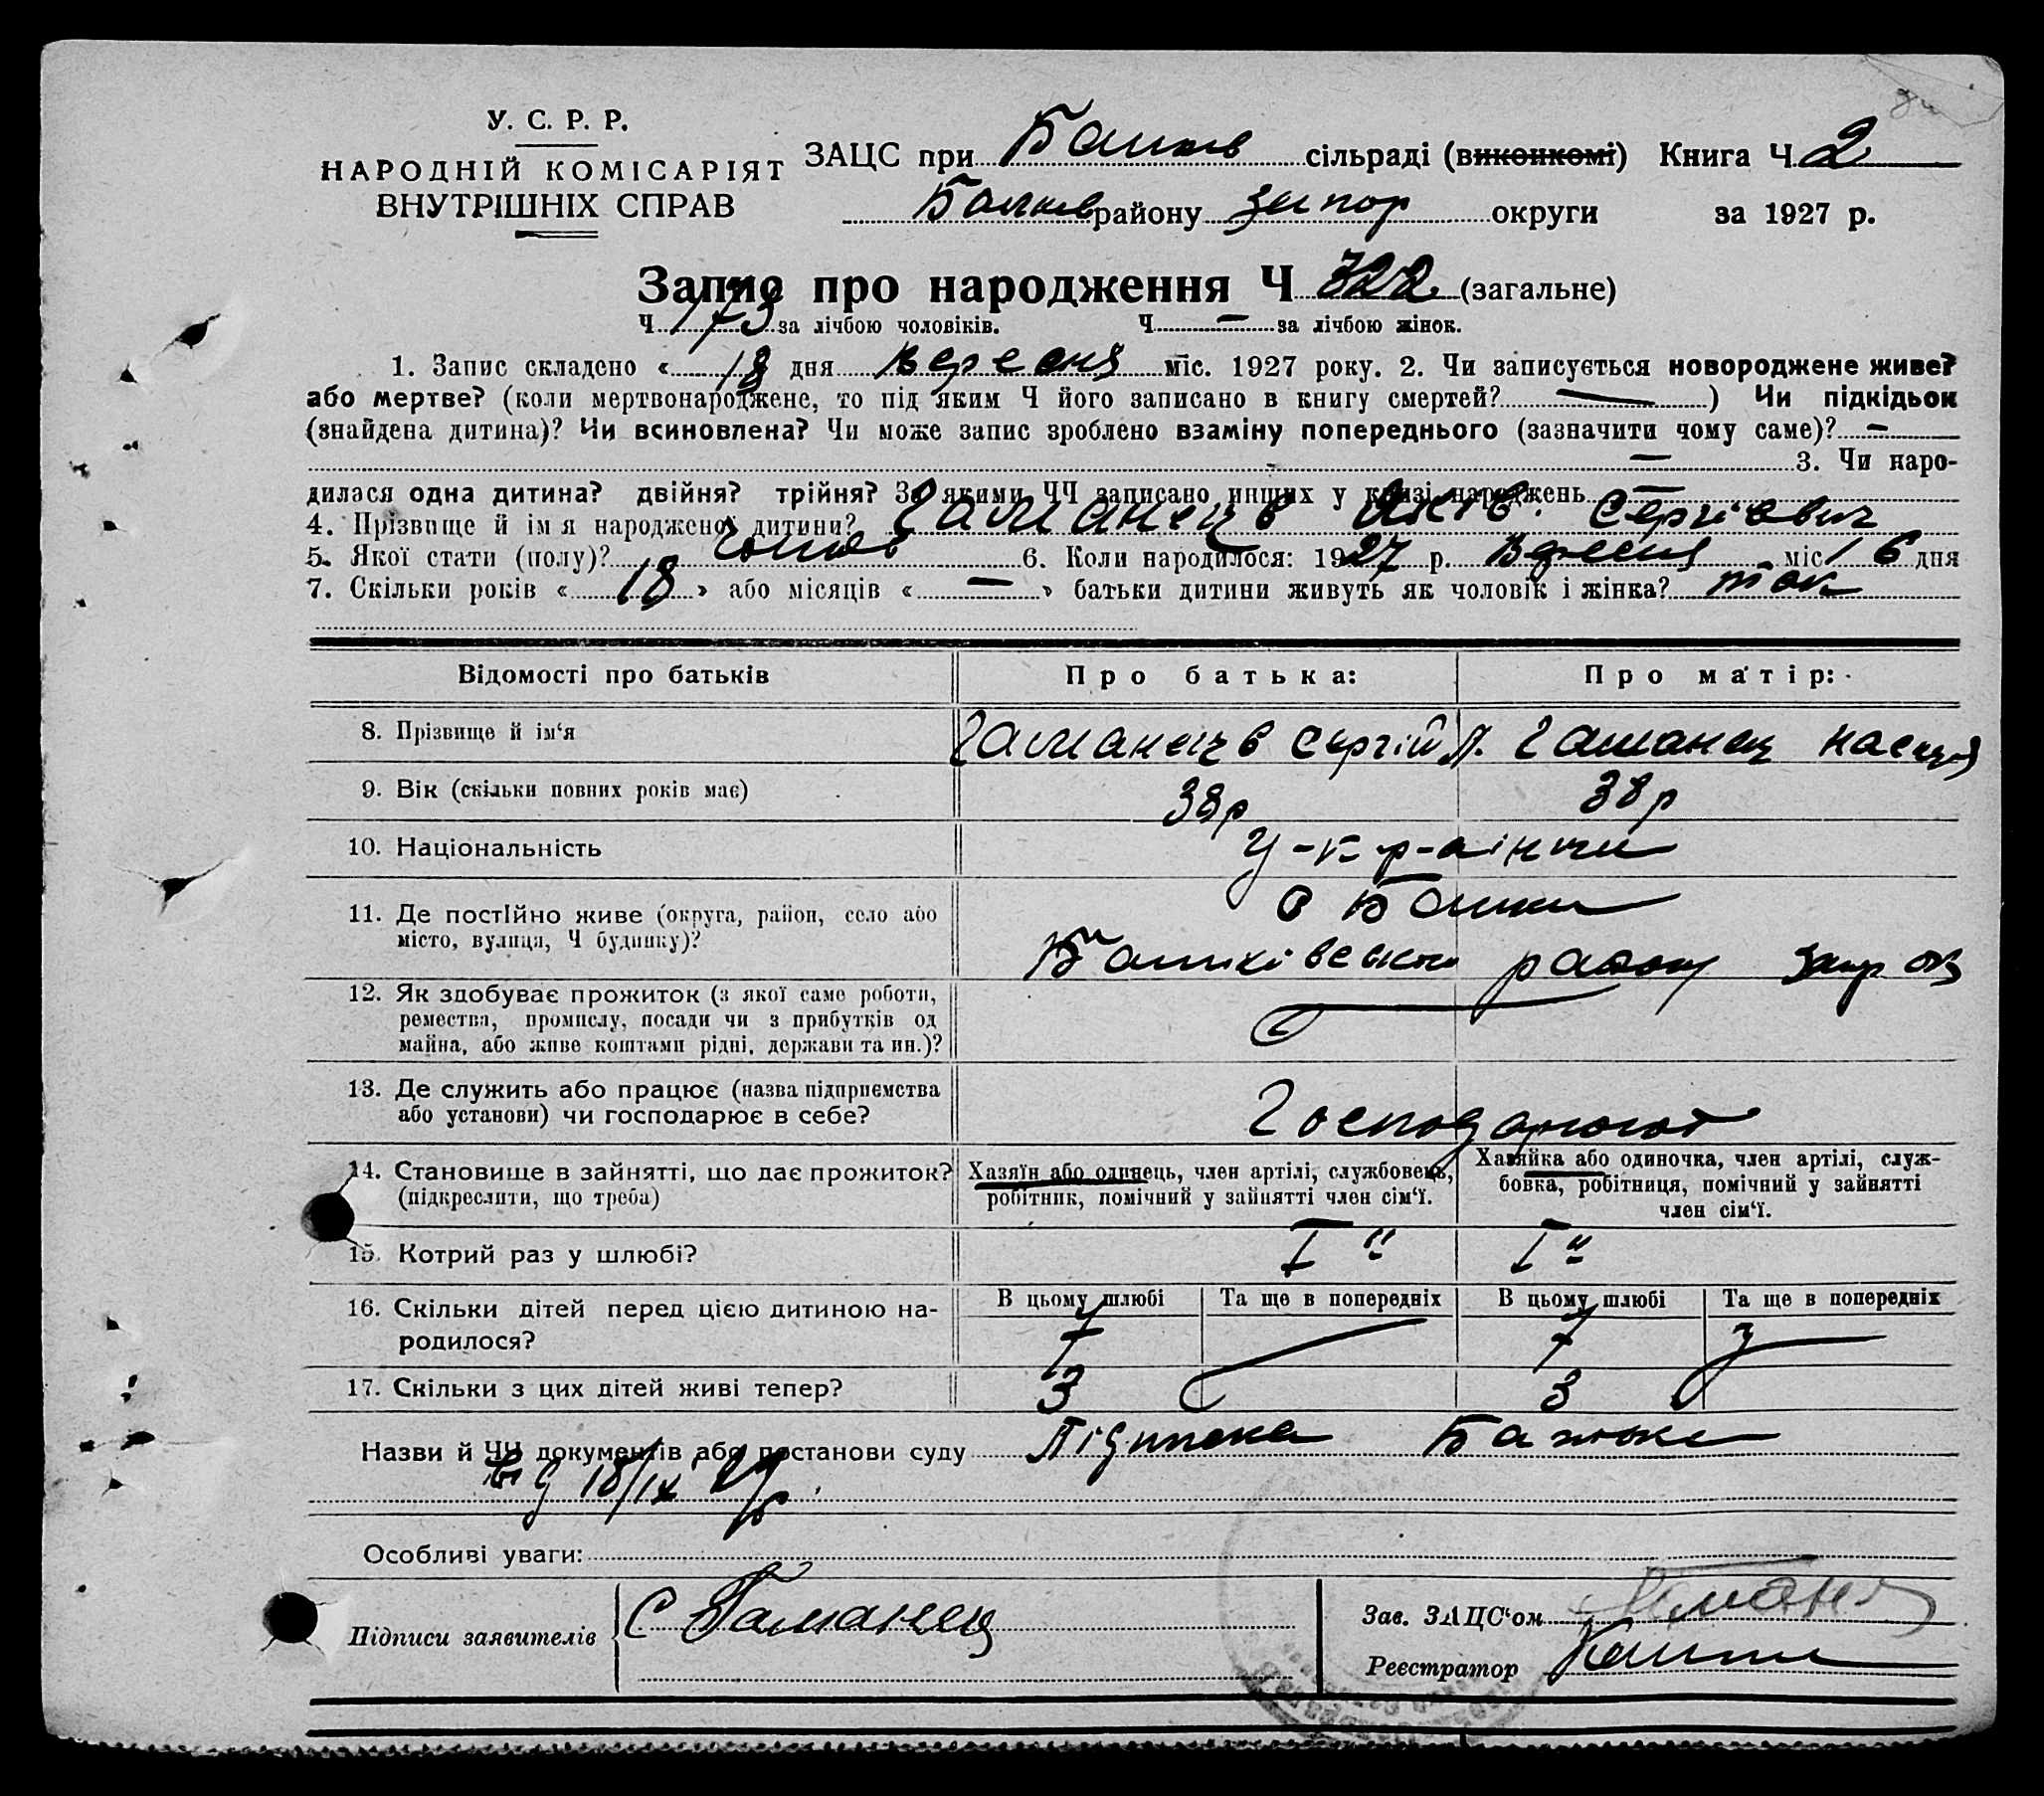 У. С. Р. Р.
НАРОДНІЙ КОМІСАРІЯТ
ВНУТРІШНІХ СПРАВ
ЗАЦС при сільраді (виконкомі) Книга Ч 2
району запор округи за 1927 р.
Запис про народження Ч 322 (загальне)
Ч 173 за лічбою чоловіків. Ч — за лічбою жінок.
1. Запис складено « 18 дня вересня міс. 1927 року. 2. Чи записується новороджене живе?
або мертве? (коли мертвонароджене, то під яким Ч його записано в книгу смертей? — ) Чи підкідьок
(знайдена дитина)? Чи всиновлена? Чи може запис зроблено взаміну попереднього (зазначити чому саме)? —
— 3. Чи наро-
дилася одна дитина? двійня? трійня? За якими ЧЧ записано инших у книзі народжень —
4. Прізвище й ім я народженої дитини? Гаманець Сергіович
5. Якої стати (полу)? 6. Коли народилося: 1927 р. Вересня міс 16 дня
7. Скільки років « 18 » або місяців « — » батьки дитини живуть як чоловік і жінка? так
Відомості про батьків Про батька: Про матір:
8. Прізвище й ім‘я Гаманець Сергій Гаманец
9. Вік (скільки повних років має) 38р 38р
10. Національність У-к-р-аінци
11. Де постійно живе (округа, район, село або
місто, вулиця, Ч будинку)?
району
12. Як здобуває прожиток (з якої саме роботи,
ремества, промислу, посади чи з прибутків од
майна, або живе коштами рідні, держави та ин.)?
13. Де служить або працює (назва підприємства
або установи) чи господарює в себе? Господарюют
14. Становище в зайнятті, що дає прожиток?
(підкреслити, що треба)
Хазяїн або одинець, член артілі, службовець,
робітник, помічний у зайнятті член сім‘ї.
Хазяйка або одиночка, член артілі, служ-
бовка, робітниця, помічний у зайнятті
член сім‘ї.
15. Котрий раз у шлюбі? I" I"
16. Скільки дітей перед цією дитиною на-
родилося?
В цьому шлюбі Та ще в попередніх В цьому шлюбі Та ще в попередніх
7 7
17. Скільки з цих дітей живі тепер? 3 3
Назви й ЧЧ документів або постанови суду
від 18/IX 27р.
Особливі уваги:
Підписи заявителів С Гаманец
Зав. ЗАЦС‘ом
Реєстратор